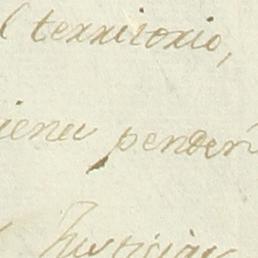 l territorio,
iena penden
Justicias